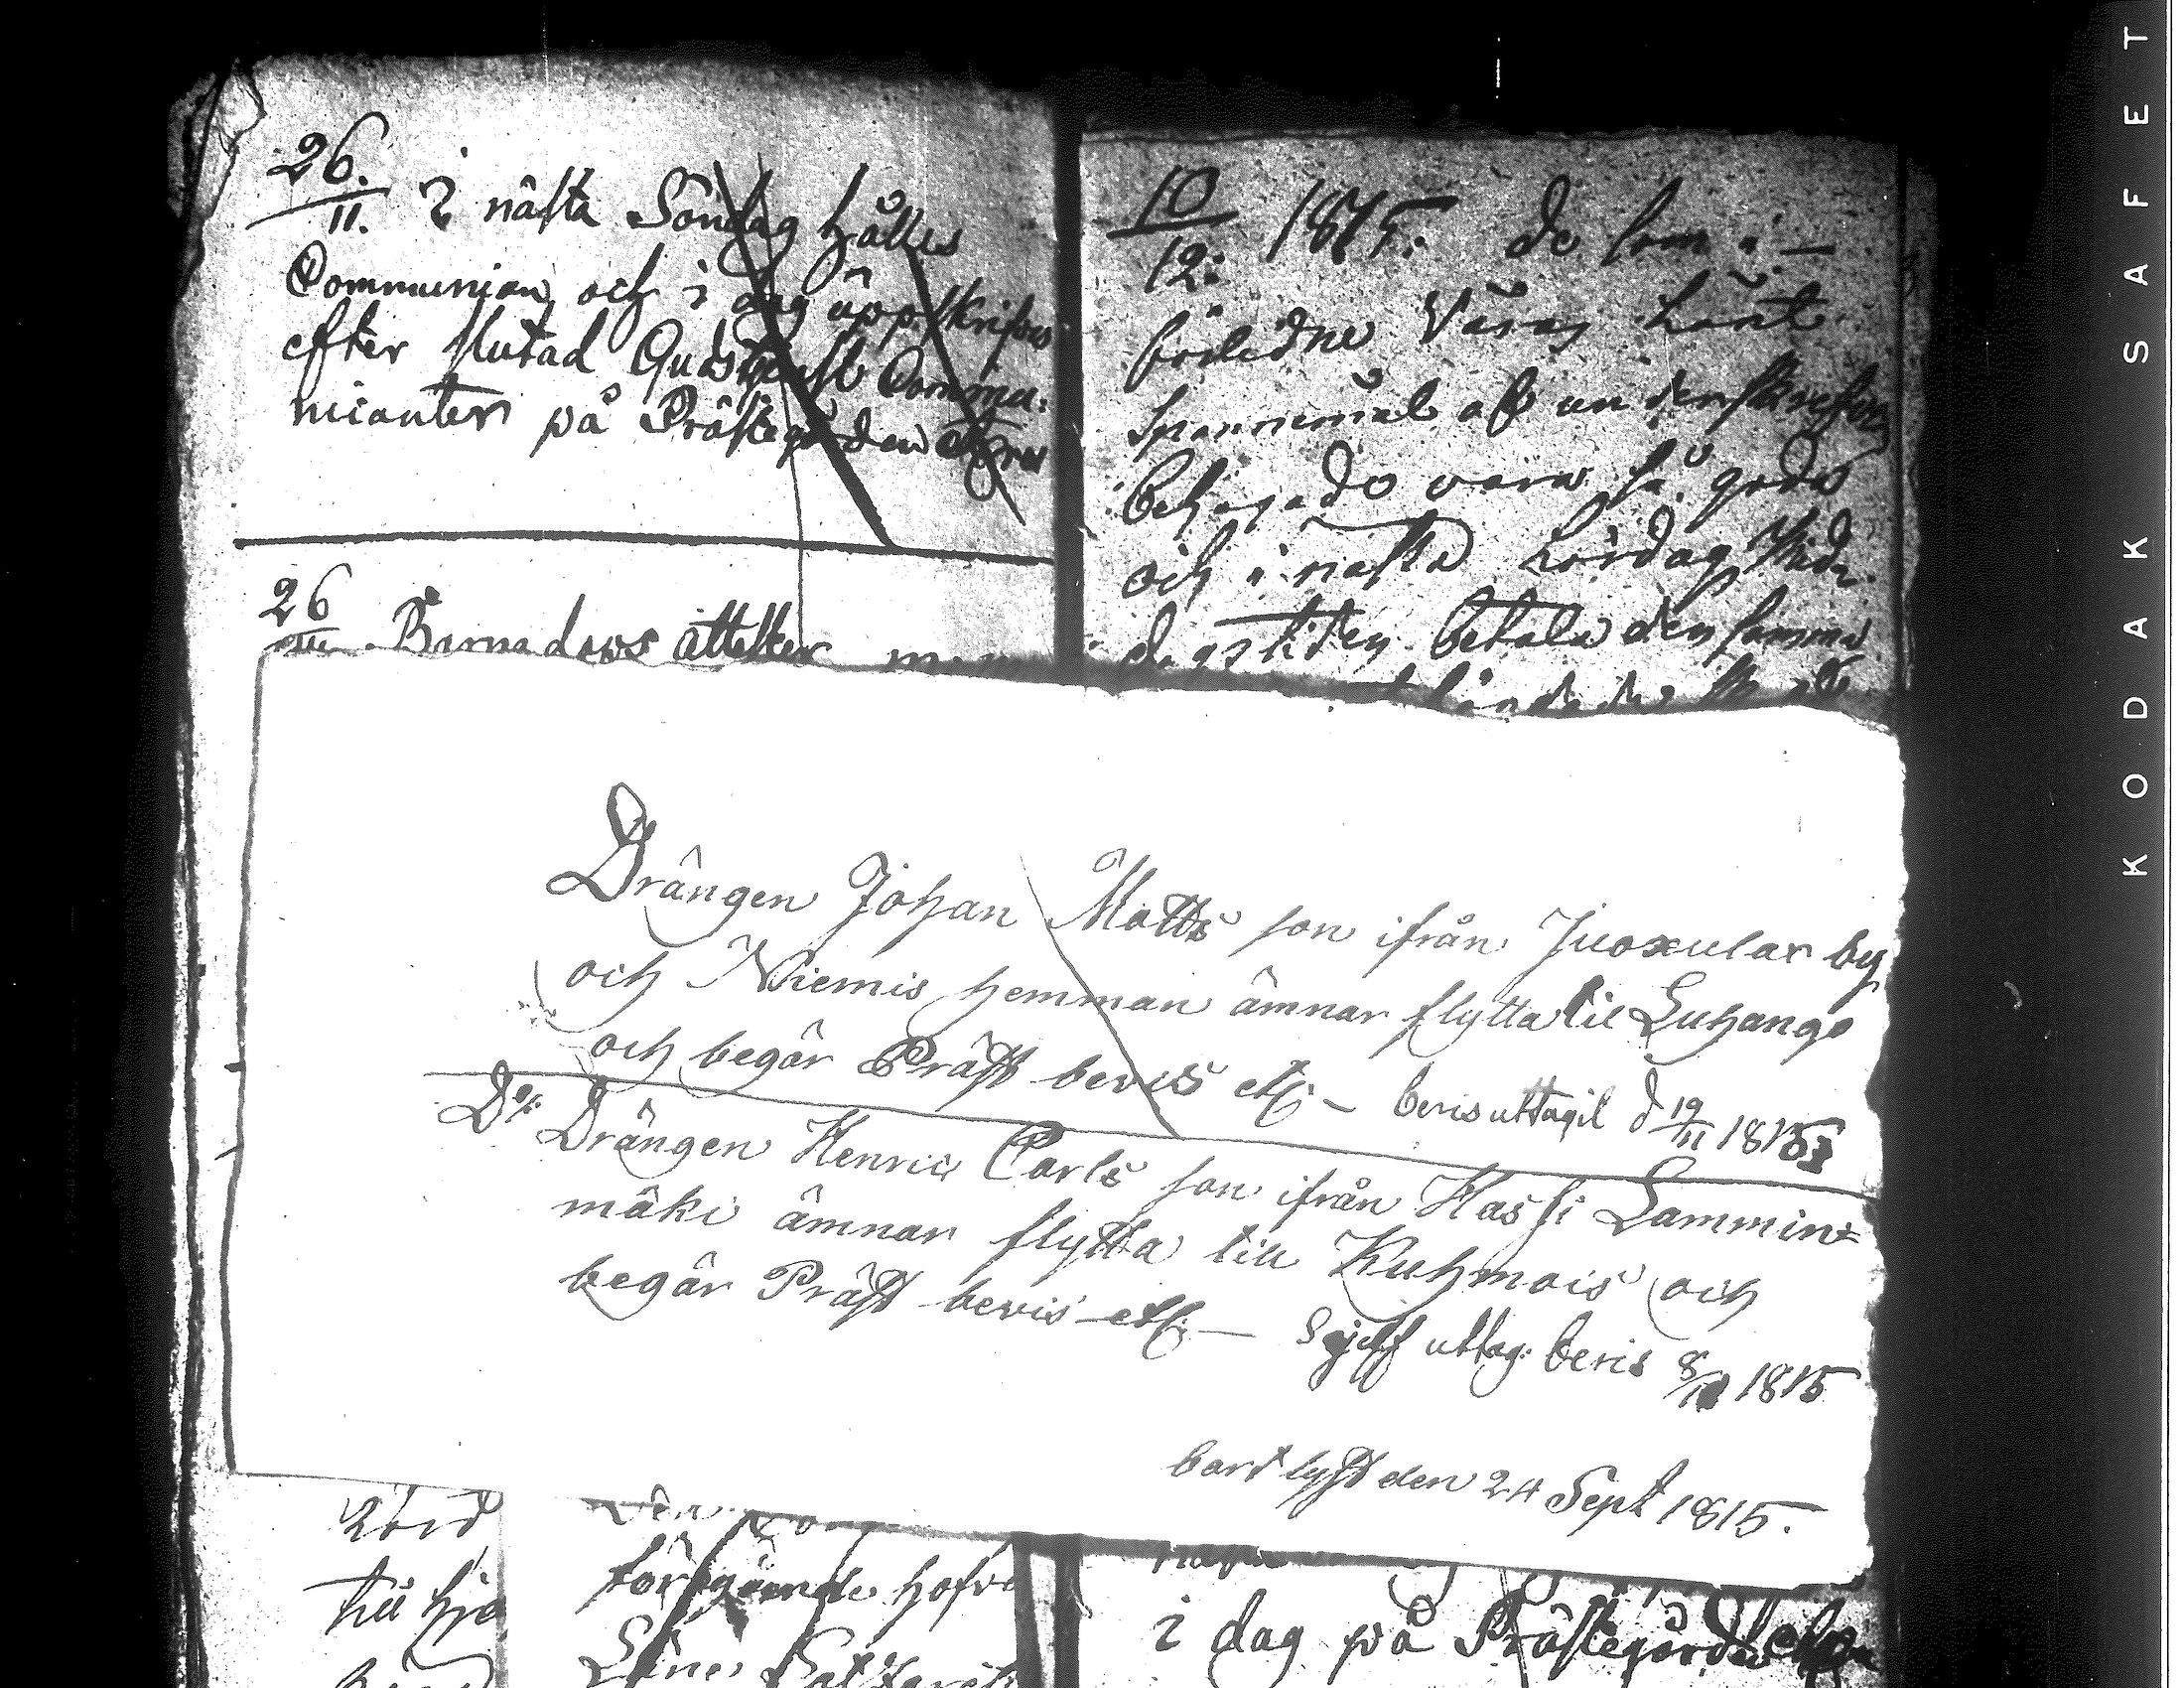 26.
11. I nästa Söndag hålles
Communion och i dag uppskrifves
efter slutad Gudstjenst Commu:
nicanter på Prästegården
26
Barnadops attester
10
12: 1815. de som i
förledne Våras lånt
Spannemål af undenskrefven
behagade vara så goda
och i nästa Lördag Midd
dagstiden betala den samma
Drängen Johan Matts son ifrån Juoxular by
och Niemis hemman ämnar flytta til Luhango
och begär Präst bevis etc: – bevis uttagit d 19/11 1815
Do: Drängen Henric Carls son ifrån Hassi Lammin=
mäki ämnar flytta till Kuhmois och
begär Präst bevis etc: — Sjelf uttag: bevis 8/ 1815
bort lyst den 24 Sept 1815.
till hjo
föregående hofv
Läne
i dag på Prästegården
KODAK SAFET